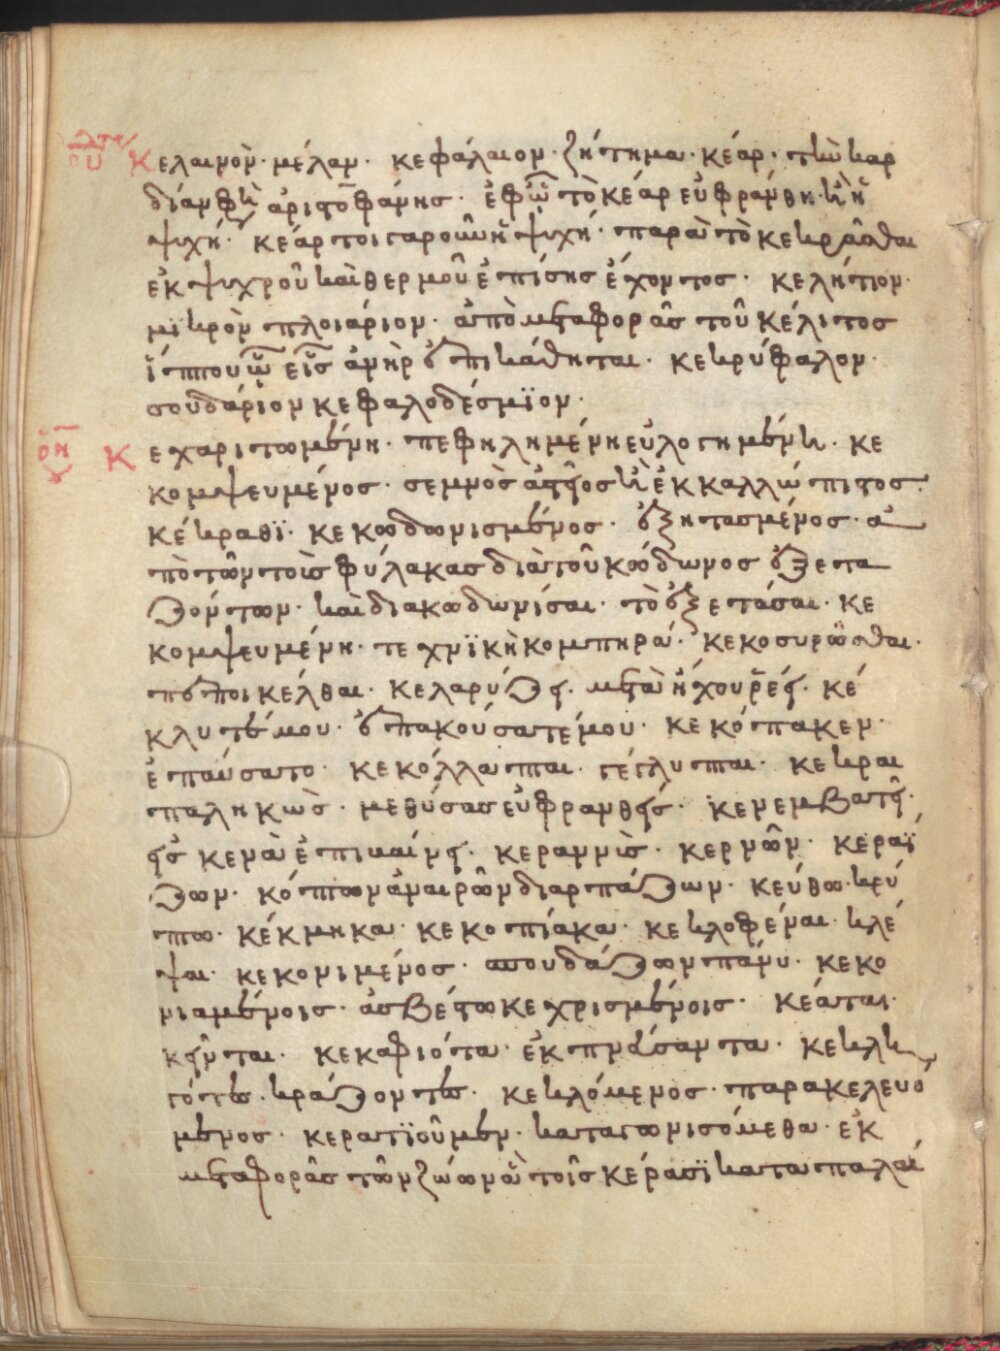 Κελαινόν· μέλαν· κεφάλαιον· ζήτημα· κέαρ· τὴν καρ
δίαν φη ἀριστοφάνης· ἐφῶ τὸ κέαρ εὐφράνθη· κὶ ἡ
ψυχή· κέαρ τοι γαροῦν ἡ ψυχή· παρὰ τὸ κεκρᾶσθαι
ἐκ ψυχροῦ καὶ θερμοῦ ἐπίσης ἔχοντος· κελήτιον·
μϊκρὸν πλοιάριον· ἀπὸ μεταφορᾶς τοῦ κέλιτος
ἵππου ὧ εἷς ἀνὴρ ἐπικάθηται· κεκρύφαλον·
σουδάριον κεφαλοδέσμϊον·
Κεχαριστωμένη· πεφηλημένη εὐλογημένη· κε
κομψευμένος· σεμνὸς ἀστεῖος κὶ ἐκκαλλώπιστος·
κέκραθϊ· κεκωδωνισμένος· ἐξητασμένος· ἀ
πὸ τῶν τοὺς φύλακας διὰ τοῦ κώδωνος ἐξετα
ζόντων· καὶ διακωδωνίσαι· τὸ ἐξετάσαι· κε
κομψευμένη· τεχνϊκὴ κομπηρά· κεκοσυρῶσθαι·
κελαρύζει· μετὰ ἤχου ῥέει· κέ
κλυτέ μου· ἐπακούσατέ μου· κεκόπακεν·
ἐπαύσατο· κεκόλλαπται· γέγλυπται· κεκραι
παληκὼς· μεθύσας εὐφρανθείς· κενεμβατεῖ·
εἰς κενὰ ἐπιβαίνει· κεραννὺς· κερνῶν· κεραΐ
ζων· κόπτων ἀναιρῶν διαρπάζων· κεύθω· κρύ
πτω· κέκμηκα· κεκοπίακα· κεκλοφέναι· κλέ
ψαι· κεκονιμένος· σπουδάζων πάνυ· κεκο
νιαμένοις· ἀσβέστω κεχρισμένοις· κέαται·
κεῖνται· κεκαφιότα· ἐκπνεύσαντα· κεκλη
γότες· κράζοντες· κεκλόμενος· παρακελευό
μενος· κερατϊοῦμεν· καταγωνισόμεθα· ἐκ
μεταφορᾶς τῶν ζώων ἃ τοῖς κέρασϊ καταπαλαί